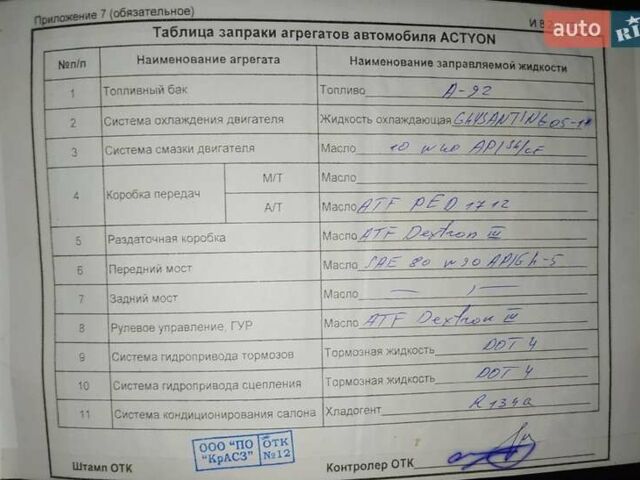 Приложение 7 (обязательное)
И 8
auto RI
Таблица запраки агрегатов автомобиля ACTYON
№п/п Наименование агрегата Наименование заправляемой жидкости
1 Топливный бак Топливо А-92
2 Система охлаждения двигателя Жидкость охлаждающая GLYSANTIN G05-11
3 Система смазки двигателя Масло 10 w 40 API
4 Коробка передач М/Т Масло
А/Т Масло ATF PED 1712
5 Раздаточная коробка Масло ATF Dextron III
6 Передний мост Масло SAE 80 w 90 API GL-5
7 Задний мост Масло — ,, —
8 Рулевое управление, ГУР Масло ATF Dextron III
9 Система гидропривода тормозов Тормозная жидкость DOT 4
10 Система гидропривода сцепления Тормозная жидкость DOT 4
11 Система кондиционирования салона Хладогент R 134a
ООО "ПО "КрАСЗ" ОТК №12
Штамп ОТК Контролер ОТК